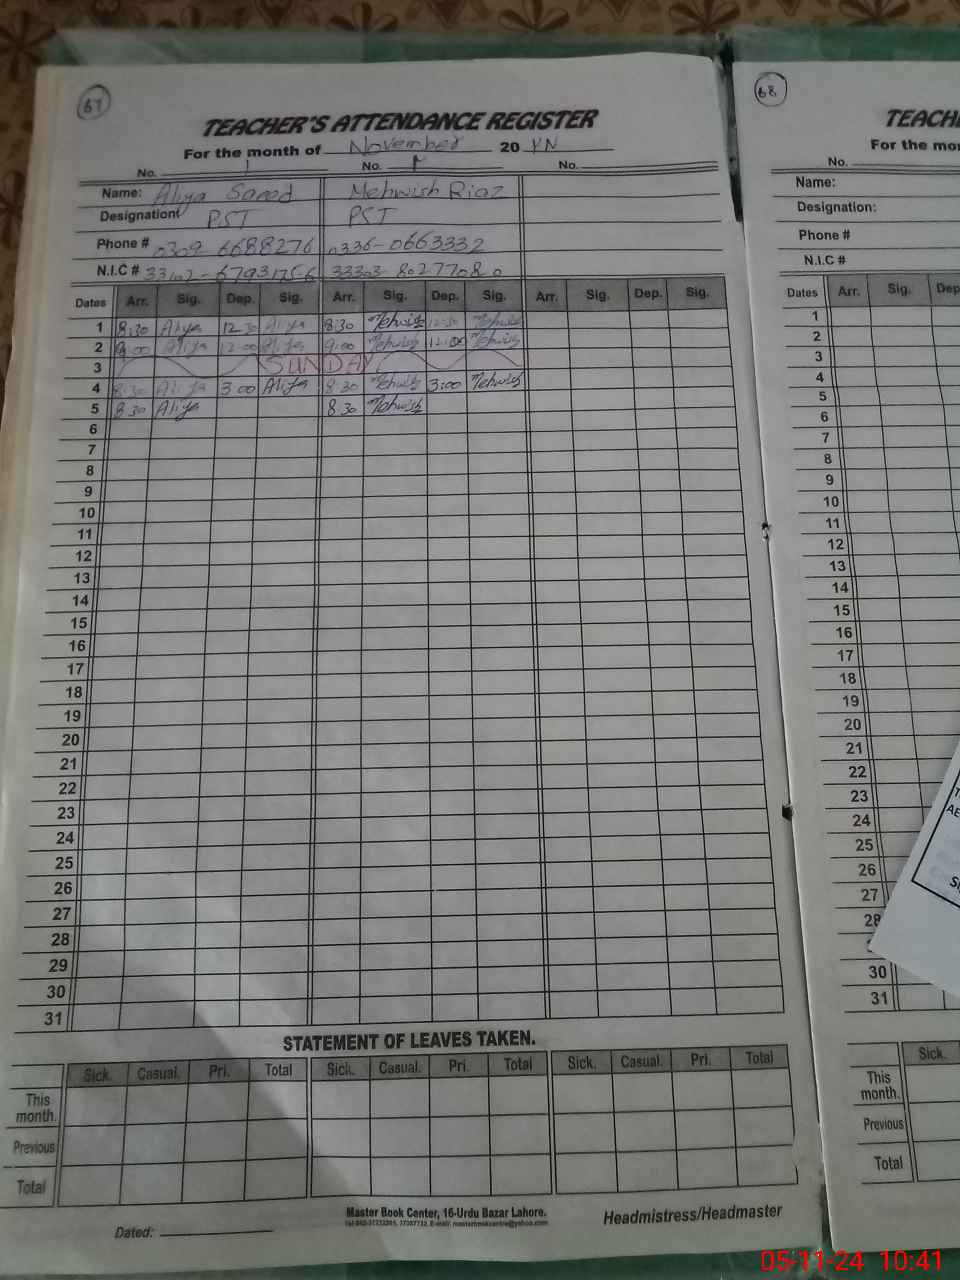 67
TEACHER'S ATTENDANCE REGISTER
For the month of November 20
No. 1 No. No.
Name: Aliya Saeed Mehwish Riaz
Designation: PST PST
Phone # 0309 6688276 0336-0663332
N.I.C # 33303 8027708 0
Dates Arr. Sig. Dep. Sig. Arr. Sig. Dep. Sig. Arr. Sig. Dep. Sig.
1 8:30 Aliya 12 30 Aliya 8:30 Mehwish 12:30 Mehwish
2 9:00 Aliya 12:00 Aliya 9:00 Mehwish 12:00 Mehwish
3 SUNDAY
4 8:30 Aliya 3:00 Aliya 8:30 Mehwish 3:00 Mehwish
5 8:30 Aliya 8:30 Mehwish
6
7
8
9
10
11
12
13
14
15
16
17
18
19
20
21
22
23
24
25
26
27
28
29
30
31
STATEMENT OF LEAVES TAKEN.
Sick. Casual. Pri. Total Sick. Casual. Pri. Total Sick. Casual. Pri. Total
This month.
Previous
Total
Master Book Center, 16-Urdu Bazar Lahore.
Dated: Headmistress/Headmaster
68
TEACHE
For the mo
No.
Name:
Designation:
Phone #
N.I.C #
Dates Arr. Sig. Dep
1
2
3
4
5
6
7
8
9
10
11
12
13
14
15
16
17
18
19
20
21
22
23
24
25
26
27
28
30
31
Sick.
This month.
Previous
Total
05-11-24 10:41